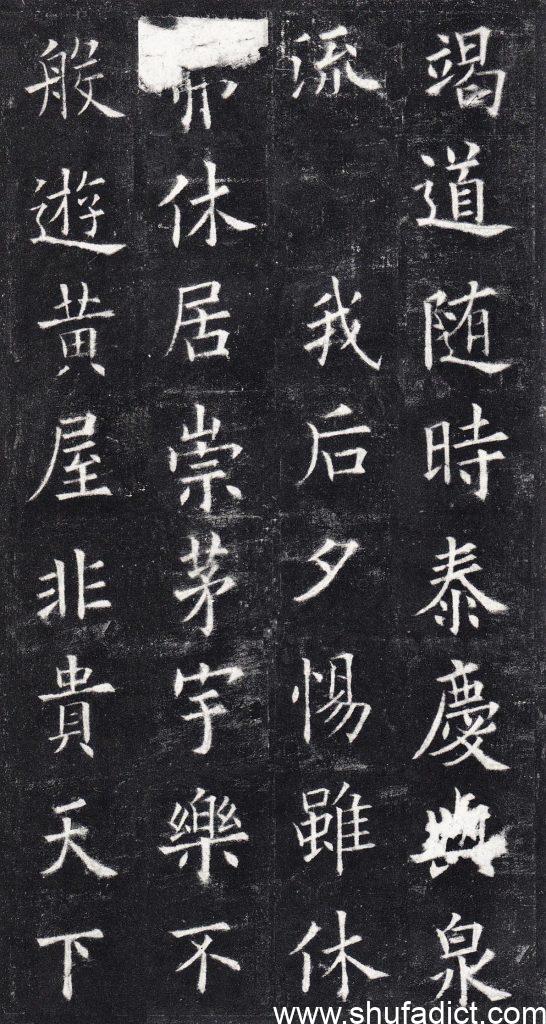 竭道随時泰慶與泉
流 我后夕惕雖休
休居崇茅宇樂不
般遊黄屋非貴天下
www.shufadict.com